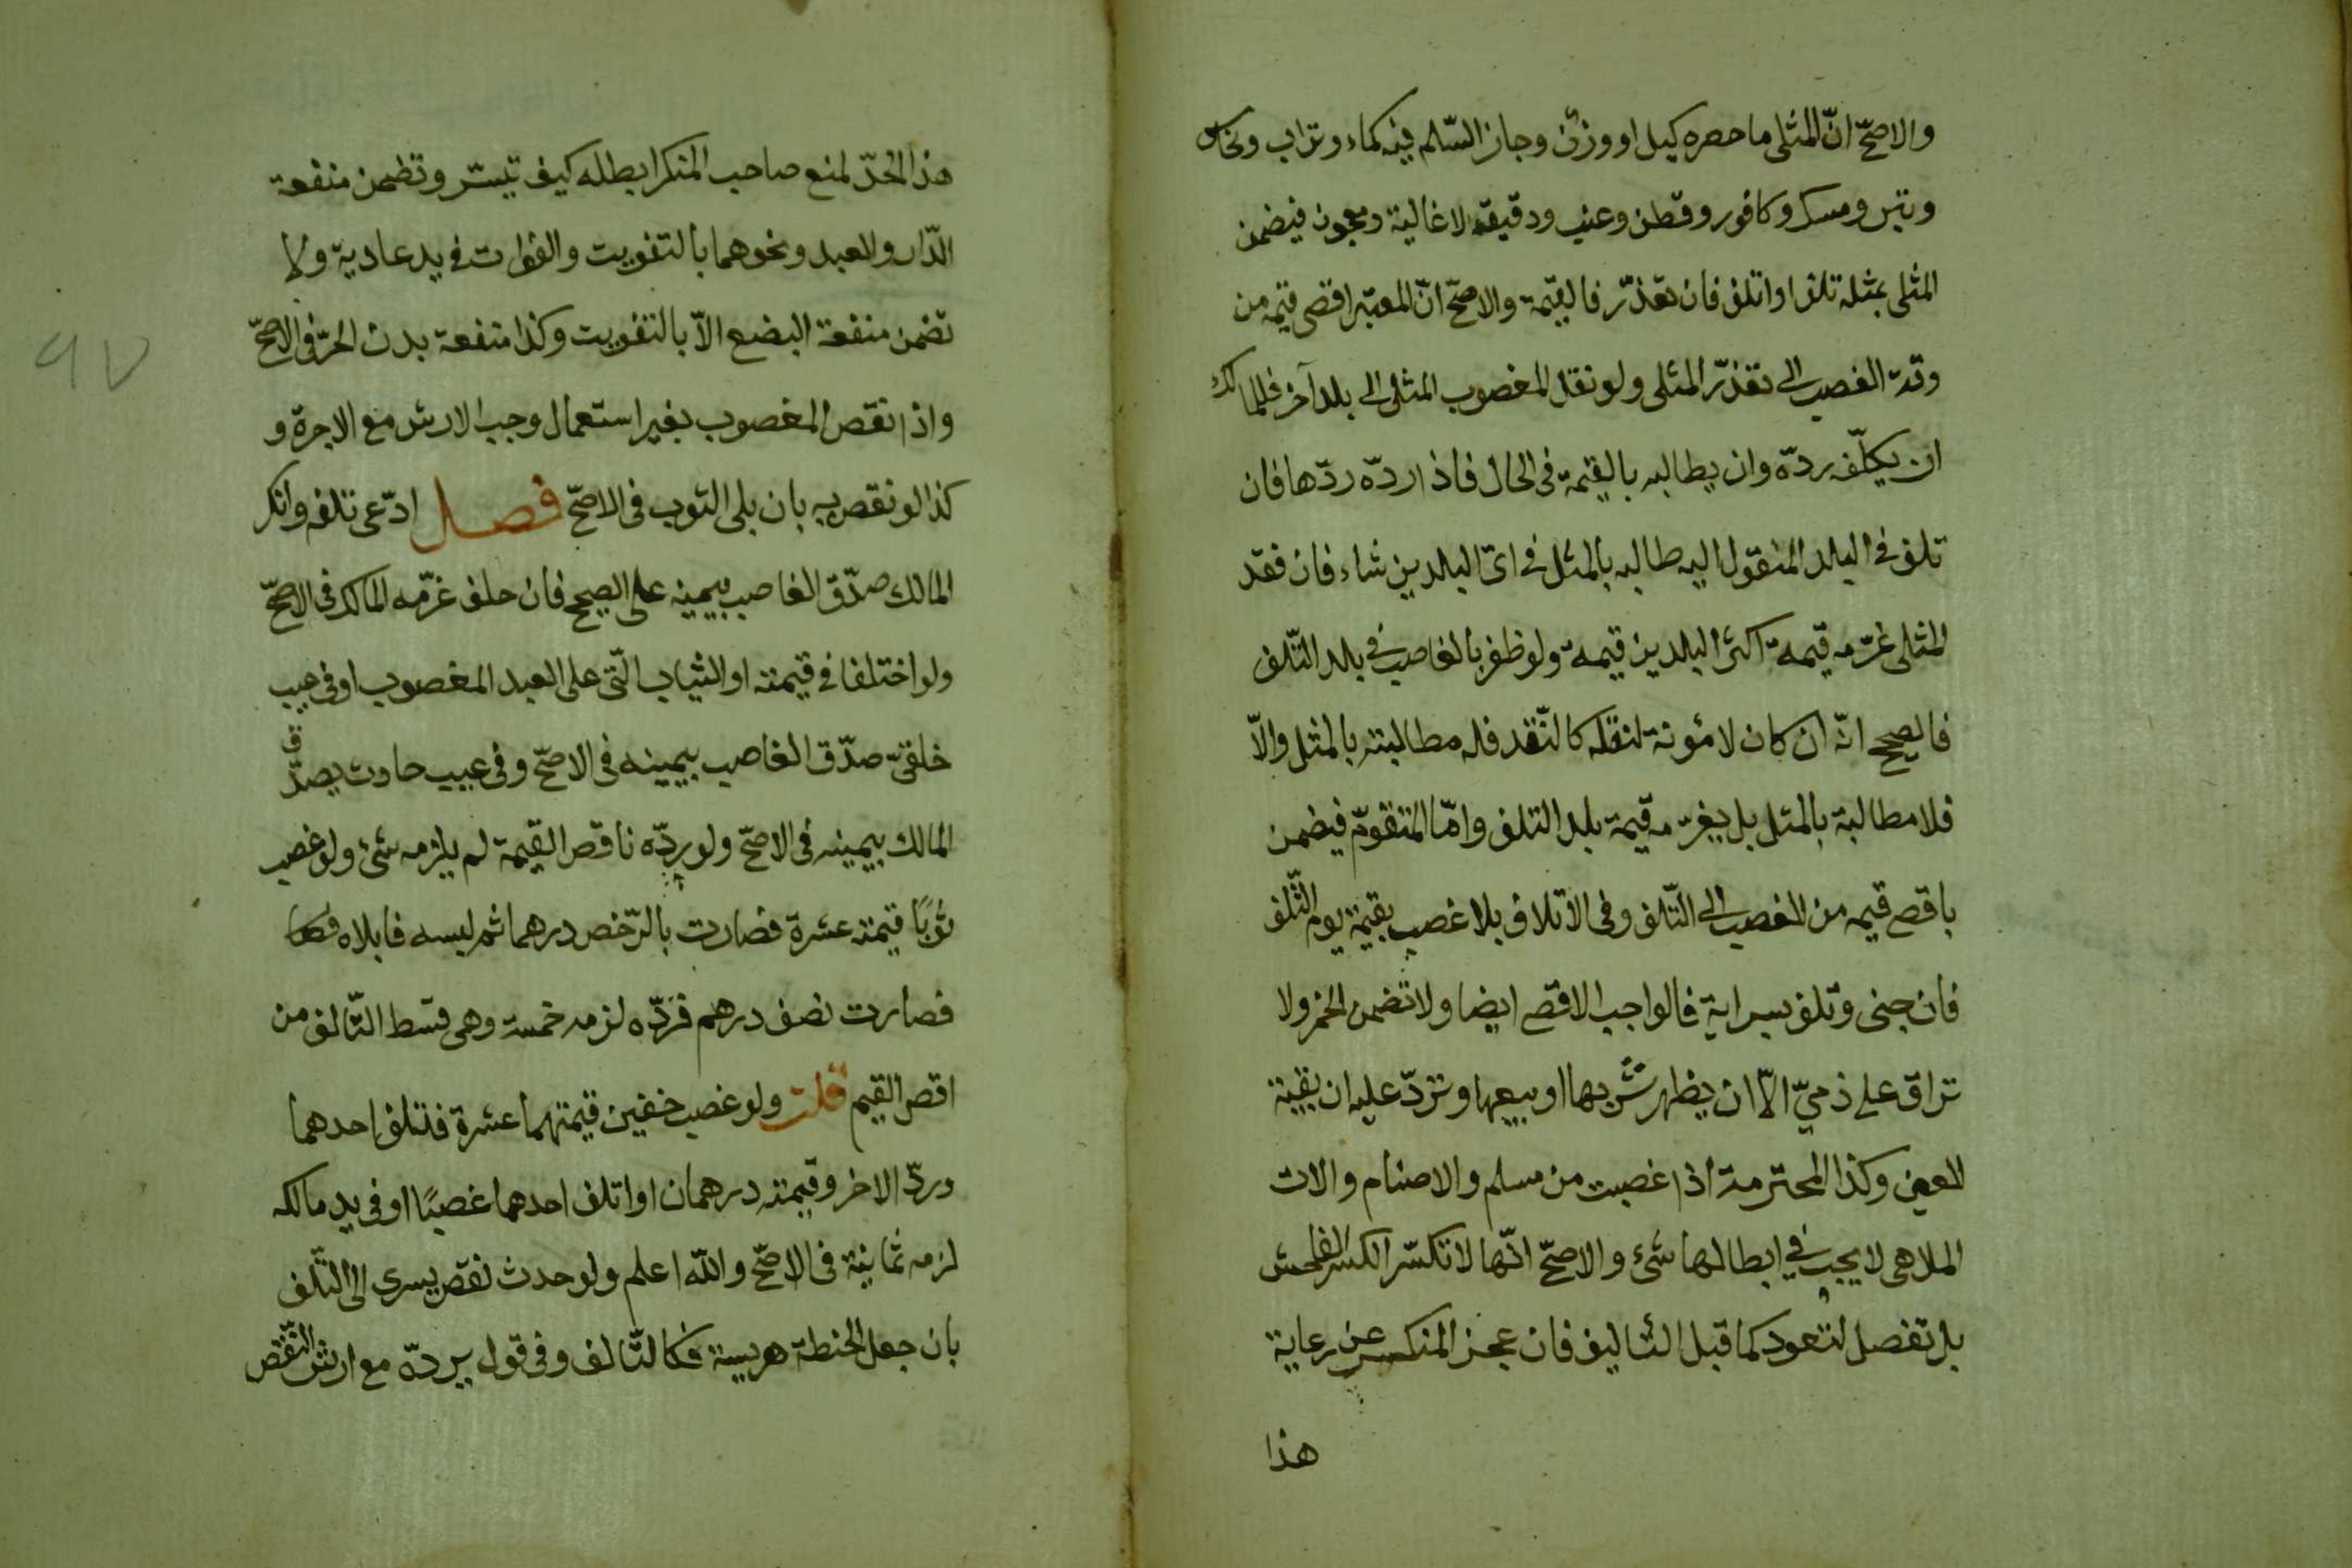 والاصحّ انّ المثلى ما حصره كيل او وزن وجاز السّلم فيه كماء وتراب ونحاس
وتبن ومسك وكافور وقطن وعنب ودقيق لا غالية ومعجون فيضمن
المثلى بمثله تلف او اتلف فان تعذّر فالقيمة والاصحّ انّ المعتبر اقصى قيمه من
وقت الغصب الى تعذّر المثلى ولو نقل المغصوب المثلى الى بلد آخر فللمالك
ان يكلّفه ردّه وان يطالبه بالقيمة فى الحال فاذا ردّه ردّها فان
تلف فى البلد المنقول اليه طالبه بالمثل فى اىّ البلدين شاء فان فقد
المثلى غرّمه قيمة اكثر البلدين قيمة ولو ظفر بالغاصب فى بلد التّلف
فالصحيح انّه ان كان لا مئونة لنقله كالنّقد فله مطالبته بالمثل والّا
فلا مطالبة بالمثل بل يغرّمه قيمة بلد التلف وامّا المتقوّم فيضمن
باقصى قيمه من الغصب الى التّلف وفى الاتلاف بلا غصب بقيمة يوم التّلف
فان جنى وتلف بسراية فالواجب الاقصى ايضا ولا تضمن الخمر ولا
تراق على ذمىّ الّا ان يظهر شربها او بيعها وتردّ عليه ان بقيت
العين وكذا المحترمة اذا غصبت من مسلم والاصنام والات
الملاهى لا يجب فى ابطالها شئ والاصحّ انّها لا تكسّر الكسر الفاحش
بل تفصل لتعود كما قبل التاليف فان عجز المنكر عن رعاية
هذا
هذا الحدّ لمنع صاحب المنكر ابطله كيف تيسّر وتضمن منفعة
الدّار والعبد ونحوهما بالتفويت والفوات فى يد عادية ولا
تضمن منفعة البضع الّا بالتفويت وكذا منفعة بدن الحرّ فى الاصحّ
واذا نقص المغصوب بغير استعمال وجب الارش مع الاجرة و
كذا لو نقص به بان بلى الثوب فى الاصحّ فصل ادّعى تلفه وانكر
المالك صدّق الغاصب بيمينه على الصحيح فان حلف غرّمه المالك فى الاصحّ
ولو اختلفا فى قيمته او الثياب الّتى على العبد المغصوب او فى عيب
خلقىّ صدّق الغاصب بيمينه فى الاصحّ وفى عيب حادث يصدّق
المالك بيمينه فى الاصحّ ولو ردّه ناقص القيمة لم يلزمه شئ ولو غصب
ثوبًا قيمته عشرة فصارت بالرّخص درهما ثم لبسه فابلاه
فصارت نصف درهم فردّه لزمه خمسة وهى قسط التّالف من
اقصى القيم قلت ولو غصب خفين قيمتهما عشرة فتلف احدهما
وردّ الاخر وقيمته درهمان او اتلف احدهما غصبًا او فى يد مالكه
لزمه ثمانية فى الاصحّ والله اعلم ولو حدث نقص يسرى الى التّلف
بان جعل الحنطة هريسة فكالتّالف وفى قول يردّه مع ارش النّقص
٩٧